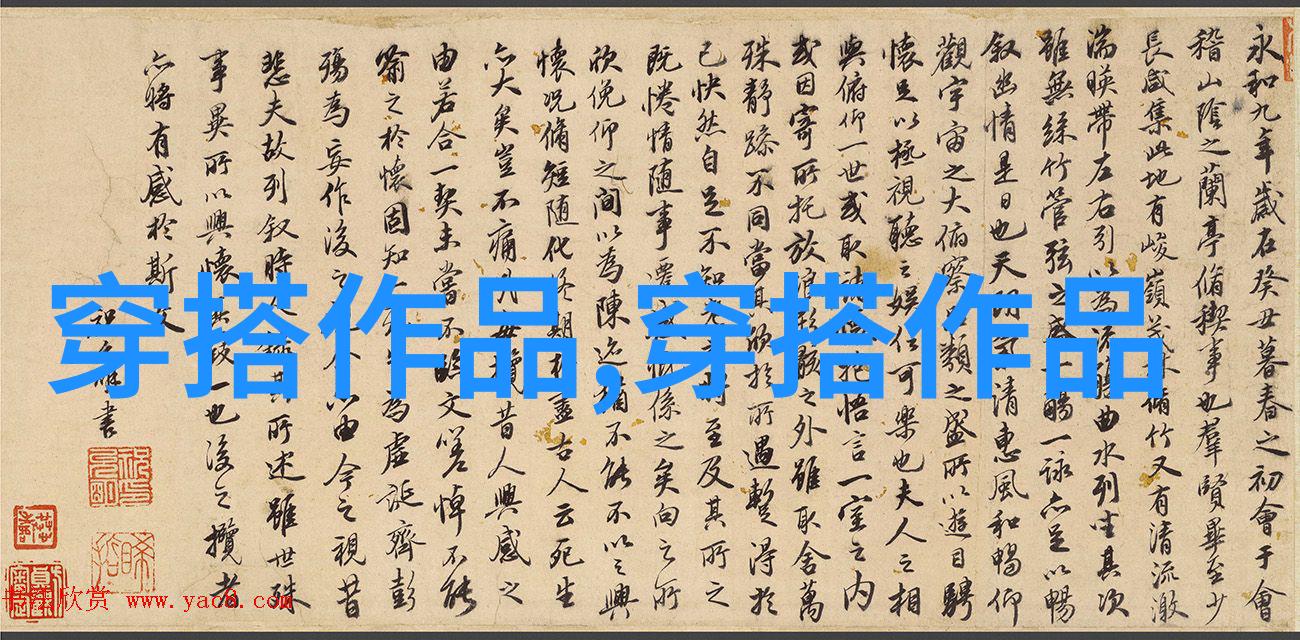 永和九年歲在癸丑暮春之初會于會
稽山陰之蘭亭脩稧事也羣賢畢至少
長咸集此地有峻嶺茂林脩竹又有清流激
湍暎帶左右引以為流觴曲水列坐其次
雖無絲竹管弦之盛一觴一詠亦足以暢
叙幽情是日也天朗氣清惠風和暢仰
觀宇宙之大俯察品類之盛所以遊目騁
懷足以極視聽之娛信可樂也夫人之相
與俯仰一世或取諸懷抱悟言一室之內
或因寄所托放浪形骸之外雖取舍萬
殊靜躁不同當其欣於所遇暫得於
己快然自足不知老之將至及其所之
既惓情随事遷感慨係之矣向之所
欣俛仰之間以為陳迹猶不能不以之興
懷况脩短随化終期於盡古人云死生
亦大矣豈不痛哉每攬昔人興感之
由若合一契未嘗不臨文嗟悼不能
喻之於懷固知一死生為虛誕齊彭
殤為妄作後之視今亦由今之視昔
悲夫故列叙時人錄其所述雖世殊
事異所以興懷其致一也後之攬者
亦將有感於斯文
祝允明書
穿搭作品,穿搭作品
欣赏 www.yac8.com